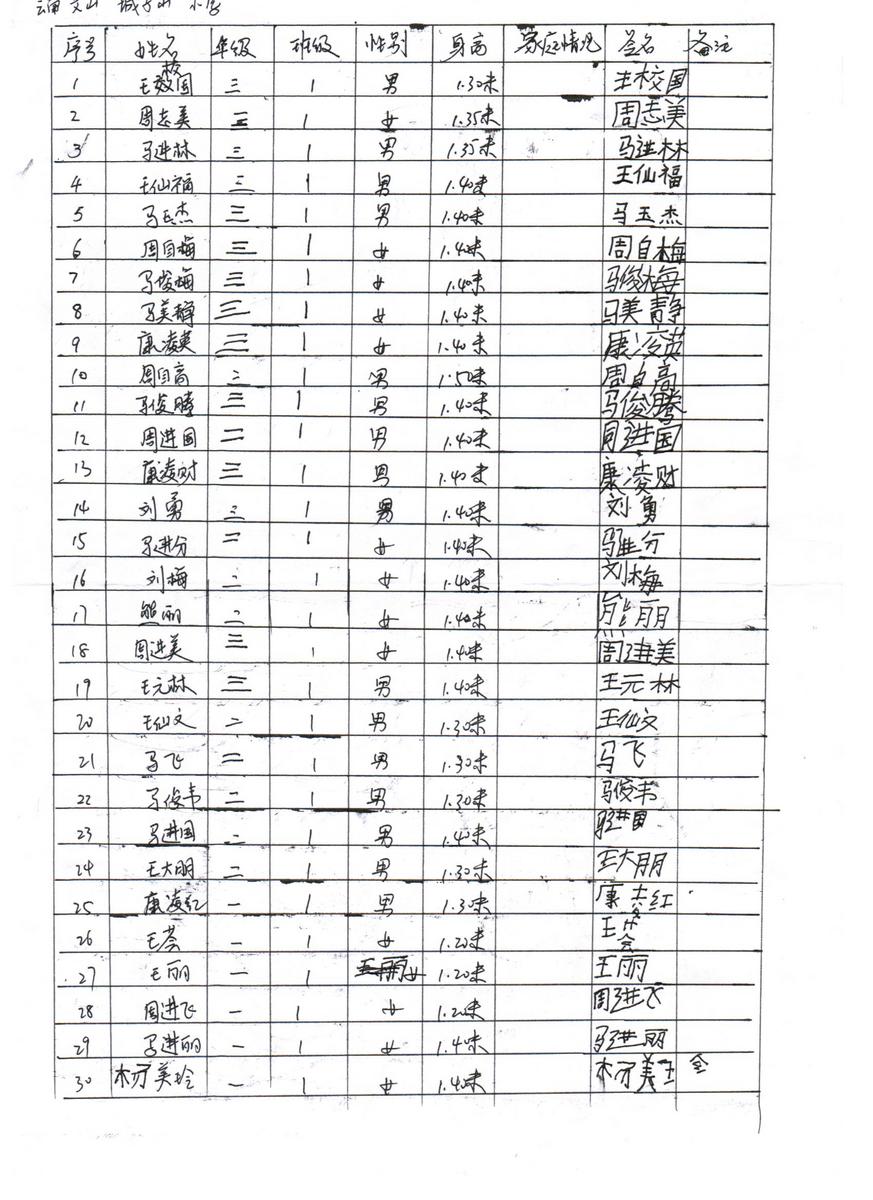 云南 文山 城子山 小学
序号 姓名 年级 班级 性别 身高 家庭情况 签名 备注
1 王校国 三 1 男 1.30米 王校国
2 周志美 三 1 女 1.35米 周志美
3 马进林 三 1 男 1.35米 马进林
4 王仙福 三 1 男 1.40米 王仙福
5 马玉杰 三 1 男 1.40米 马玉杰
6 周自梅 三 1 女 1.40米 周自梅
7 马俊梅 三 1 女 1.40米 马俊梅
8 马美静 三 1 女 1.40米 马美静
9 康凌英 三 1 女 1.40米 康凌英
10 周自高 二 1 男 1.50米 周自高
11 马俊腾 三 1 男 1.40米 马俊腾
12 周进国 二 1 男 1.40米 周进国
13 康凌财 三 1 男 1.40米 康凌财
14 刘勇 三 1 男 1.40米 刘勇
15 马进分 二 1 女 1.40米 马进分
16 刘梅 二 1 女 1.40米 刘梅
17 熊丽 二 1 女 1.40米 熊丽
18 周进美 三 1 女 1.40米 周进美
19 王元林 三 1 男 1.40米 王元林
20 王仙文 二 1 男 1.30米 王仙文
21 马飞 二 1 男 1.30米 马飞
22 马俊韦 二 1 男 1.30米 马俊韦
23 马进国 二 1 男 1.40米 马进国
24 王大朋 二 1 男 1.30米 王大朋
25 康凌红 一 1 男 1.30米 康凌红
26 王荟 一 1 女 1.20米 王荟
27 王丽 一 1 女 1.20米 王丽
28 周进飞 一 1 女 1.20米 周进飞
29 马进丽 一 1 女 1.40米 马进丽
30 美玲 一 1 女 1.40米 美玲